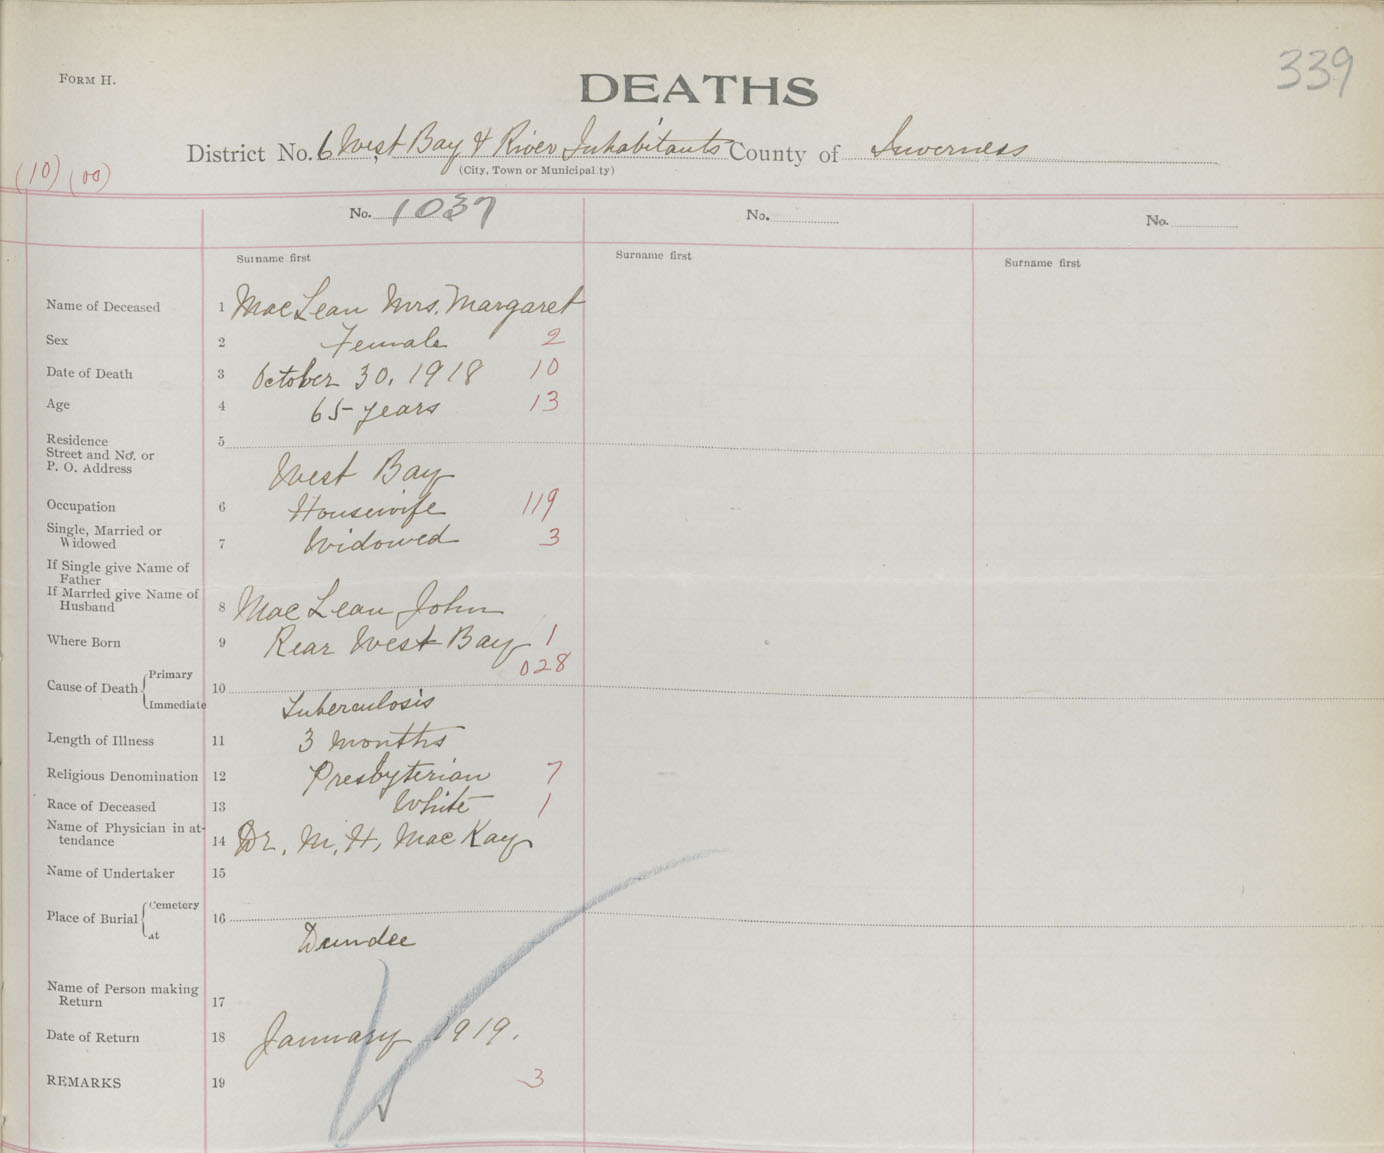 FORM H.
DEATHS
339
District No. 6 West Bay & River Inhabitants County of Inverness
(City, Town or Municipality)
(10) (00)
No. 1037 No. No.
Surname first Surname first Surname first
Name of Deceased 1 MacLean Mrs. Margaret
Sex 2 Female 2
Date of Death 3 October 30, 1918 10
Age 4 65 years 13
Residence 5
Street and No. or
P. O. Address West Bay
Occupation 6 Housewife 119
Single, Married or
Widowed 7 Widowed 3
If Single give Name of
Father
If Married give Name of
Husband 8 MacLean John
Where Born 9 Rear West Bay 1
028
Cause of Death { Primary 10
Immediate Tuberculosis
Length of Illness 11 3 months
Religious Denomination 12 Presbyterian 7
Race of Deceased 13 White 1
Name of Physician in at-
tendance 14 Dr. M. H. MacKay
Name of Undertaker 15
Place of Burial { Cemetery 16
at Dundee
Name of Person making
Return 17
Date of Return 18 January 1919.
REMARKS 19 3